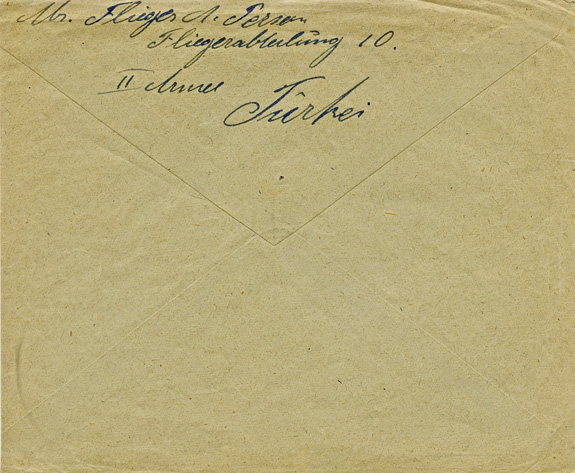 Abs. Flieger A. Person
Fliegerabteilung 10.
II Armee
Türkei